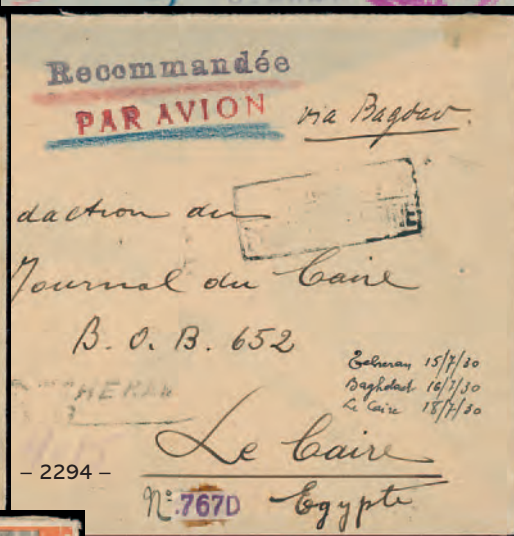 Recommandée
PAR AVION via Bagdad.
daction du
Journal du Caire
B. O. B. 652
Teheran 15/7/30
Baghdad 16/7/30
Le Caire 18/7/30
HERAN
Le Caire
– 2294 –
Nº 767D Egypte